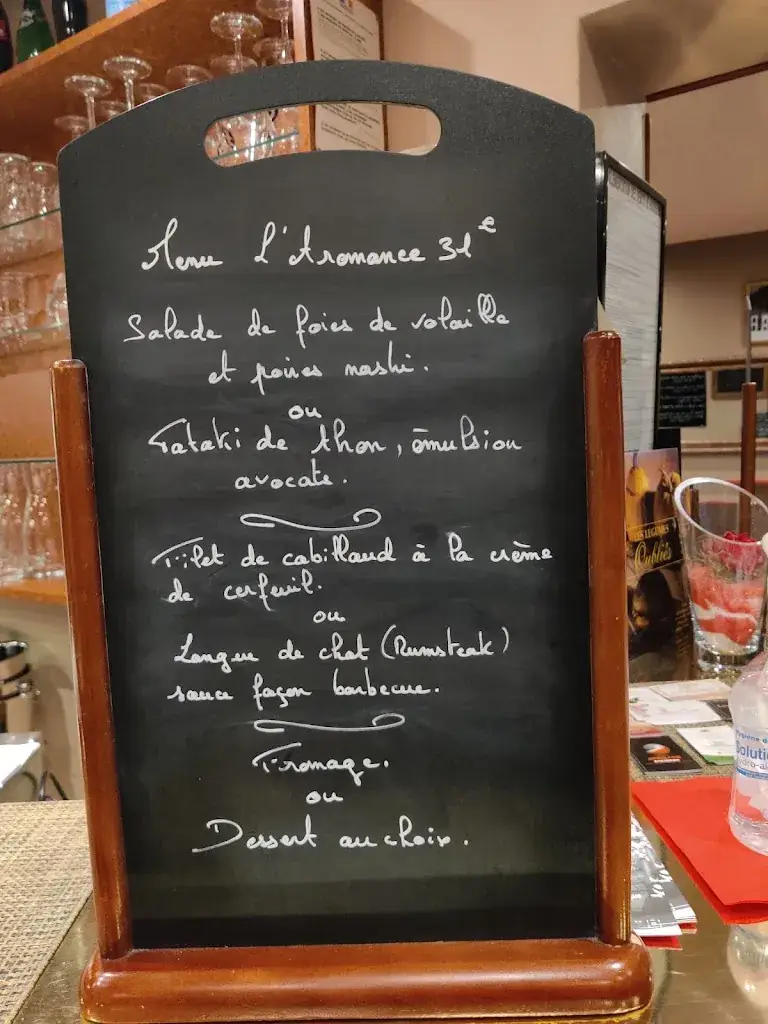 Menu L'Aromance 31€
Salade de foies de volaille
et poires nashi.
ou
Tataki de thon, émulsion
avocats.
Filet de cabillaud à la crème
de cerfeuil.
ou
Langue de chat (Rumsteak)
sauce façon barbecue.
Fromage.
ou
Dessert au choix.
LES LEGUMES
Oubliés
Solutio